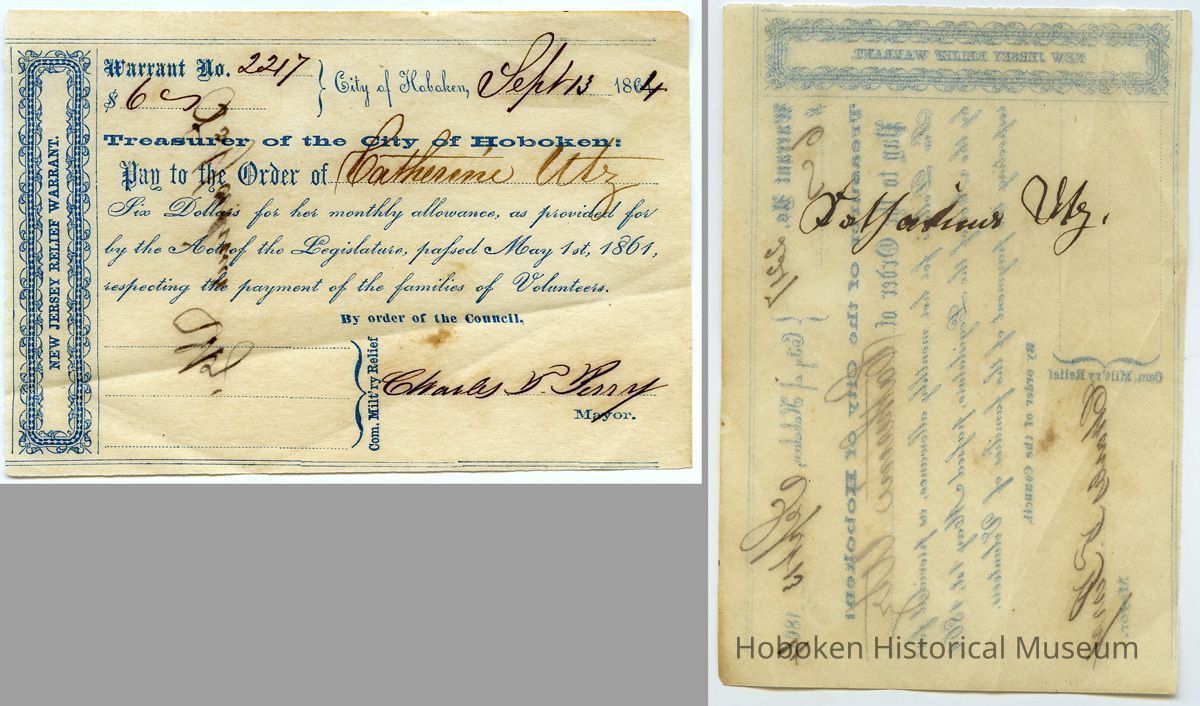 NEW JERSEY RELIEF WARRANT.
Warrant No. 2217 } City of Hoboken, Sept 13 1864
$ 6
Treasurer of the City of Hoboken:
Pay to the Order of Catherine Utz
Six Dollars for her monthly allowance, as provided for
by the Act of the Legislature, passed May 1st, 1861,
respecting the payment of the families of Volunteers.
By order of the Council,
Com. Milt'ry Relief
Charles T. Perry
Mayor.
Utz.
Hoboken Historical Museum